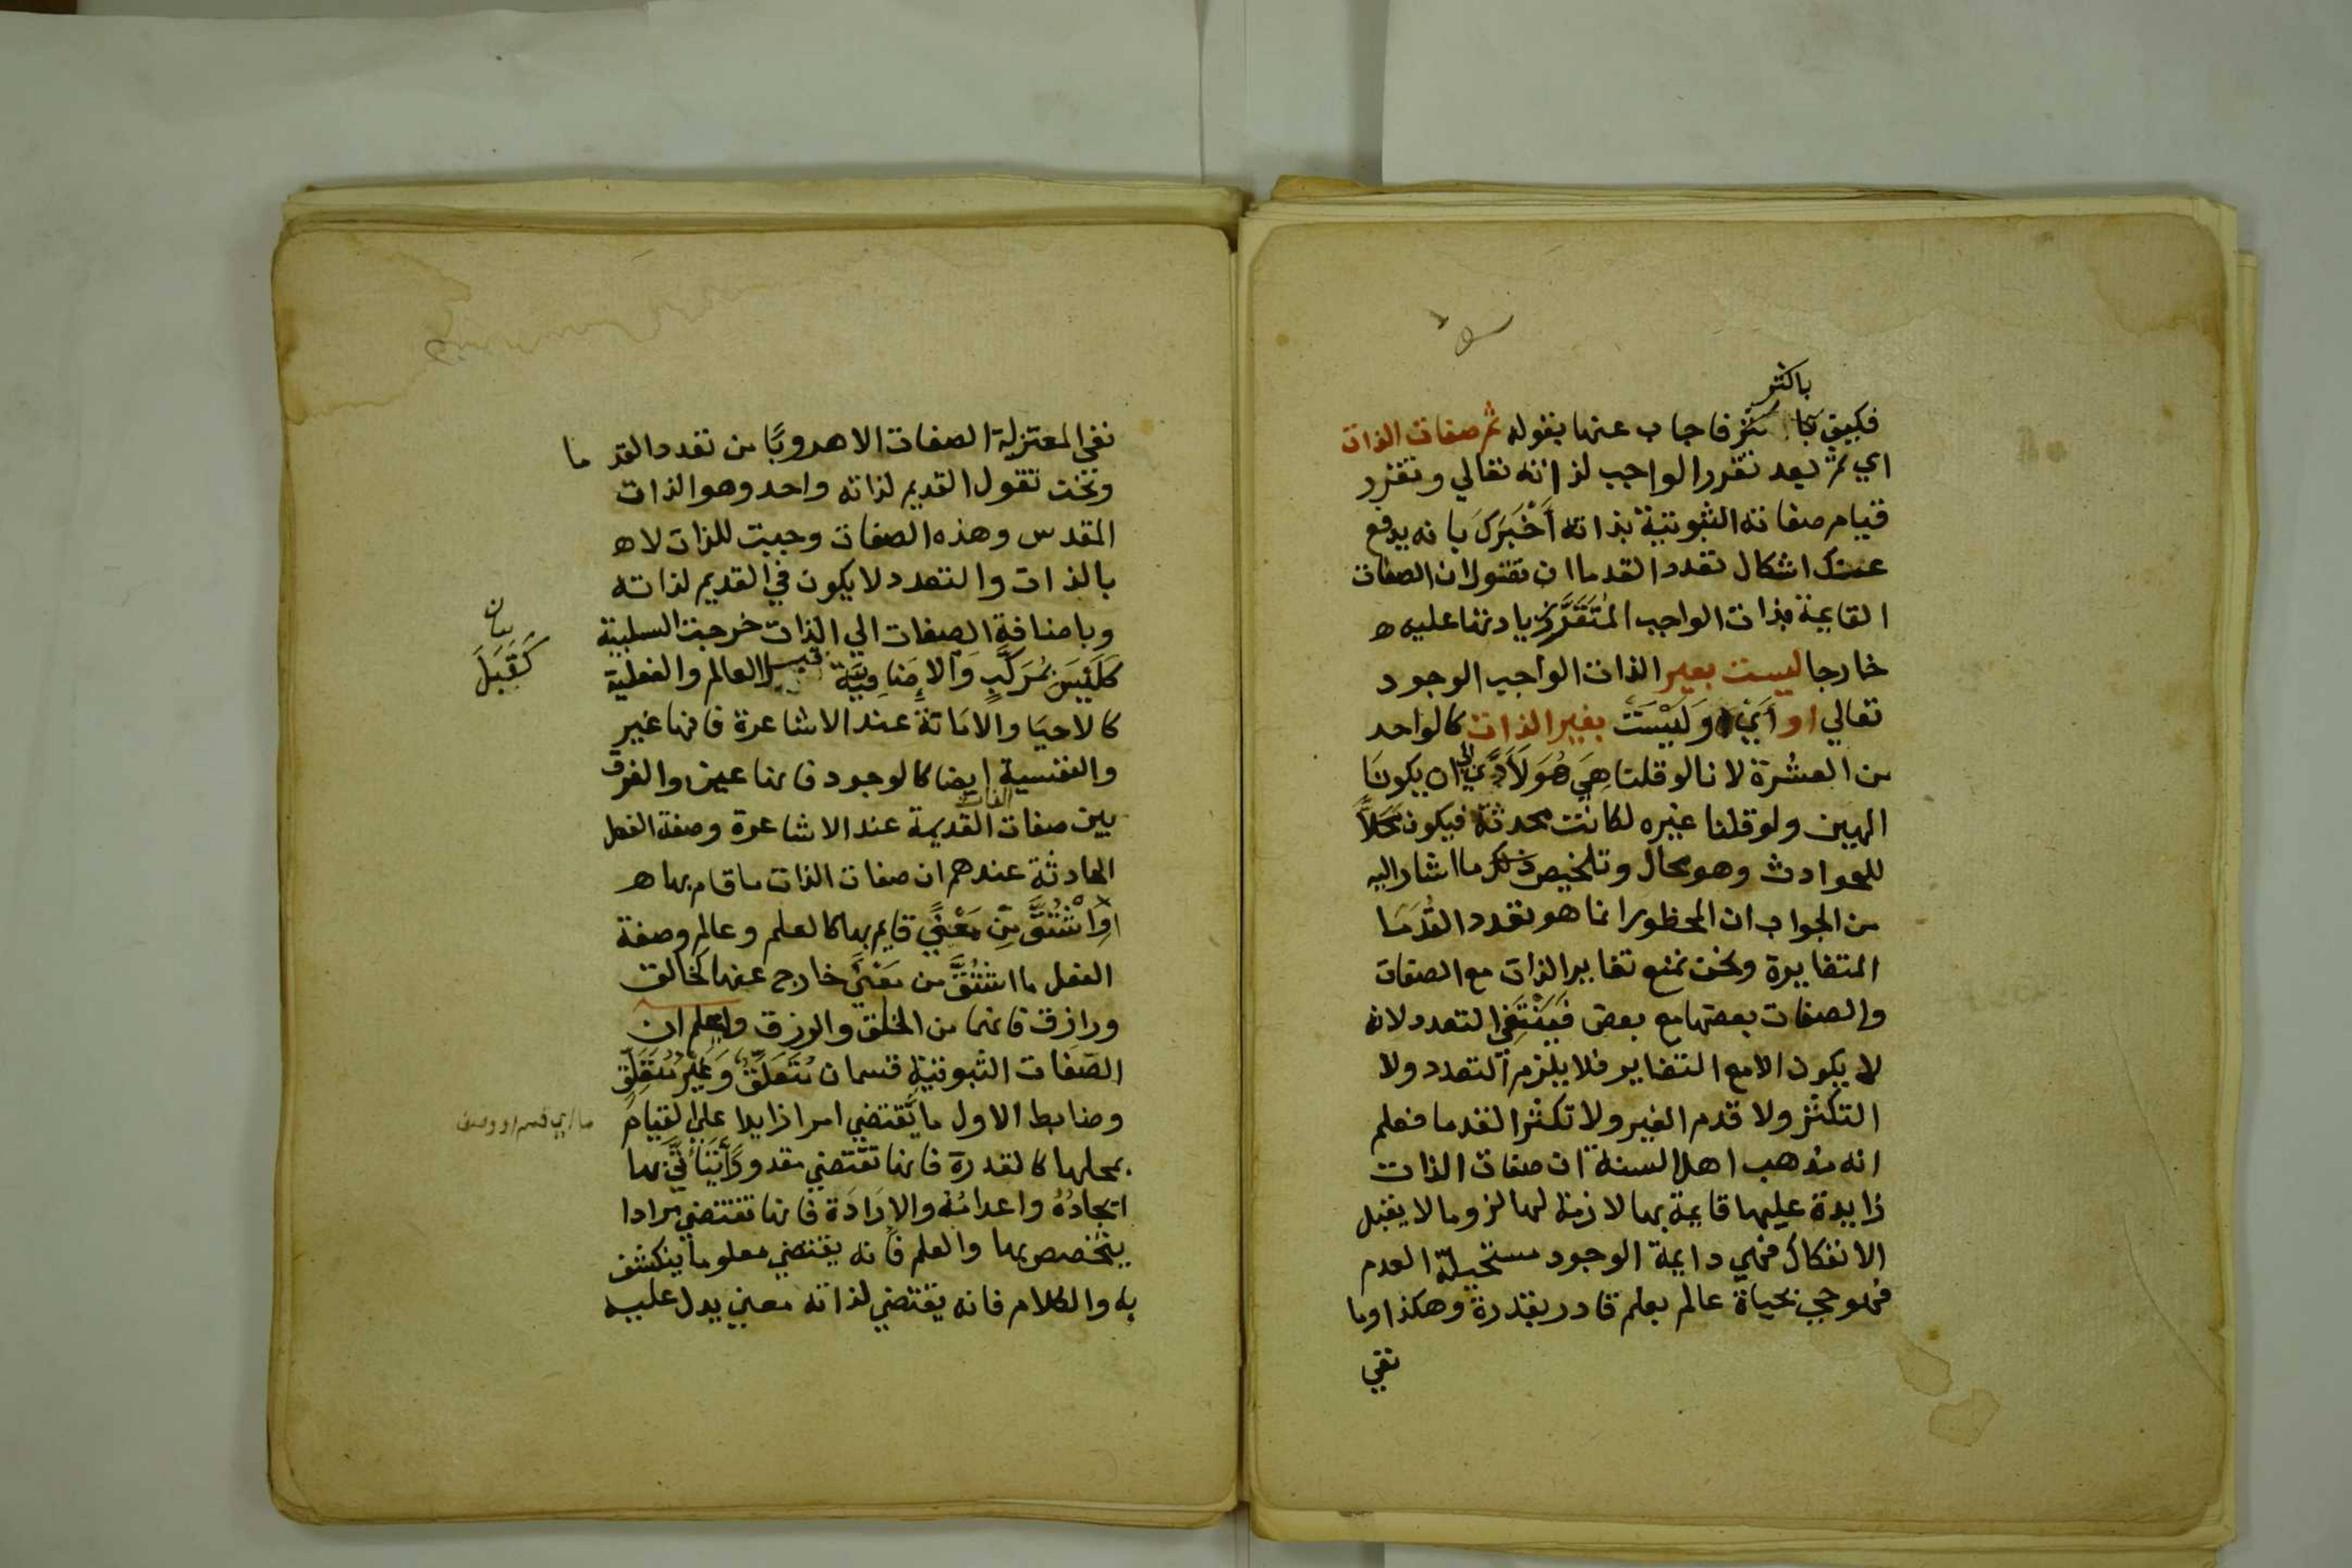 باكثر
فكيف بكثر فاجاب عنها بقوله ثم صفات الذات
اي ثم بعد تقرر الواجب لذاته تعالي وتقرر
قيام صفاته الثبوتية بذاته أَخْبَرَكَ بانه يدفع
عنك اشكال تعدد القدما ان تقول ان الصفات
القايمة بذات الواجب المُتَقَرَّرِ زيادتها عليه
خارجا ليست بعير الذات الواجب الوجود
تعالي او أيْ وَلَيْسَتْ بغير الذات كالواحد
من العشرة لانا لو قلنا هِيَ هُوَ لَأَدَّي الي ان يكونَا
الهين ولو قلنا غيره لكانت محدثة فيكون مَحَلاًّ
للحوادث وهو محال وتلخيص ذلك ما اشار اليه
من الجواب ان المحظور انما هو تعدد القُدَمَا
المتغايرة ونحن نمنع تغاير الذات مع الصفات
والصفات بعضها مع بعض فَيَنْتَفِي التعدد لانه
لا يكون الا مع التغاير فلا يلزم التعدد ولا
التكثر ولا قدم الغير ولا تكثر القدما فعلم
انه مذهب اهل السنة ان صفات الذات
زايدة عليها قايمة بها لازمة لها لزوما لا يقبل
الانفكاك فهي دايمة الوجود مستحيلة العدم
فهو حي بحياة عالم بعلم قادر بقدرة وهكذا وما
نفي
نفي المعتزلة الصفات الا هروبًا من تعدد القدما
ونحن نقول القديم لذاته واحد وهو الذات
المقدس وهذه الصفات وجبت للذات لا
بالذات والتعدد لا يكون في القديم لذاته
وباضافة الصفات الي الذات خرجت السلبية
كَلَيْسَ بمُرَكَّبٍ وَالاِضَافِيَّة كقبل العالم والفعلية
بيان
كَقَبَلَ
كالاحيَا والامَاتة عند الاشاعرة فانها غير
والنفسية ايضا كالوجود فانها عين والفرق
بين صفات الذات القديمة عند الاشاعرة وصفة الفعل
الحادثة عندهم ان صفات الذات ما قام بها
اَوِ اشْتُقَّ مِنْ مَعْنًي قايم بها كالعلم وعالم وصفة
الفعل ما اشْتُقَّ من مَعْنًي خارج عنها كخالق
ورازق فانهما من الخلق والرزق واعلم ان
الصفات الثبوتية قسمان مُتَعَلِّقٌ وَغَيْرُ مُتَعَلِّقٍ
وضابط الاول ما يَقتضي امرا زايدا علي القيام
بمحلها كالقدرة فانها تقتضي مقدورًا يَتَأَتَّي بها
ايجادُهُ واعدامُهُ والاِرَادَة فانها تقتضي مرادا
يتخصص بها والعلم فانه يقتضي معلوما ينكشف
به والكلام فانه يقتضي لذاته معني يدل عليه